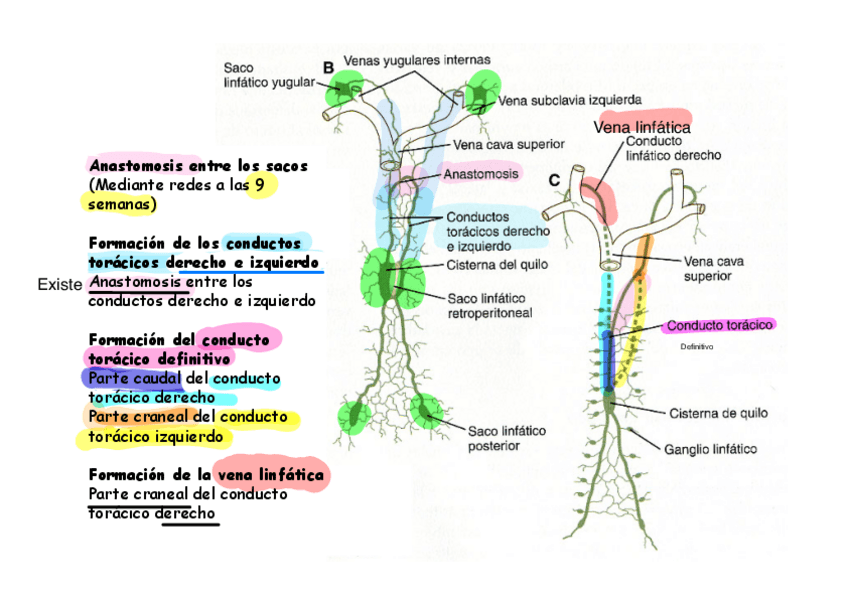 Anastomosis entre los sacos
(Mediante redes a las 9
semanas)
Formación de los conductos
torácicos derecho e izquierdo
Existe Anastomosis entre los
conductos derecho e izquierdo
Formación del conducto
torácico definitivo
Parte caudal del conducto
torácico derecho
Parte craneal del conducto
torácico izquierdo
Formación de la vena linfática
Parte craneal del conducto
torácico derecho
B
Saco
linfático yugular
Venas yugulares internas
Vena subclavia izquierda
Vena cava superior
Anastomosis
Conductos
torácicos derecho
e izquierdo
Cisterna del quilo
Saco linfático
retroperitoneal
Saco linfático
posterior
C
Vena linfática
Conducto
linfático derecho
Vena cava
superior
Conducto torácico
Definitivo
Cisterna de quilo
Ganglio linfático